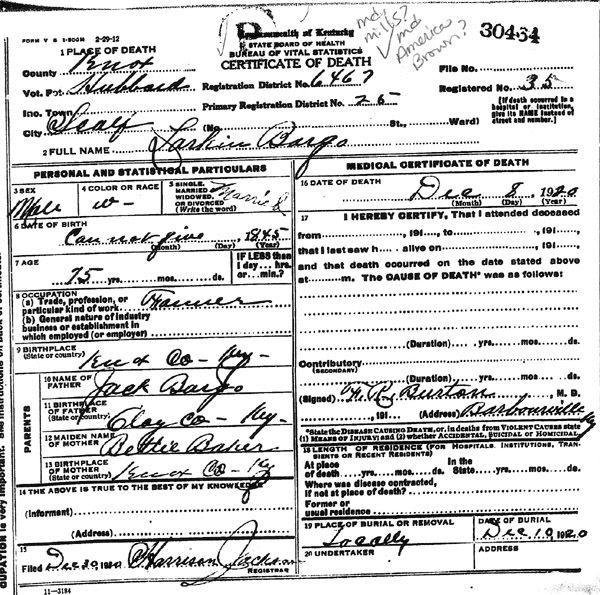 FORM V S 1-500M 2-29-12
Commonwealth of Kentucky
STATE BOARD OF HEALTH
BUREAU OF VITAL STATISTICS
CERTIFICATE OF DEATH
md,
mills?
md
America
Brown?
30434
1 PLACE OF DEATH
County Knox
Vot. Pct. Hubbard
Inc. Town
City Scalf
Registration District No. 6467
Primary Registration District No. 25
(No. St., Ward)
File No.
Registered No. 35
[If death occurred in a hospital or institution, give its NAME instead of street and number.]
2 FULL NAME Larkin Bargo
PERSONAL AND STATISTICAL PARTICULARS
3 SEX Male
4 COLOR OR RACE W-
5 SINGLE, MARRIED, WIDOWED, OR DIVORCED (Write the word) Married
6 DATE OF BIRTH
Can not give 1845
(Month) (Day) (Year)
7 AGE
75 yrs. mos. ds.
IF LESS than 1 day... hrs. or... min.?
8 OCCUPATION
(a) Trade, profession, or particular kind of work Farmer
(b) General nature of industry business or establishment in which employed (or employer)
9 BIRTHPLACE
(State or country) Knox Co - Ky-
PARENTS
10 NAME OF FATHER Jack Bargo
11 BIRTHPLACE OF FATHER (State or country) Clay Co - Ky-
12 MAIDEN NAME OF MOTHER Bettie Baker
13 BIRTHPLACE OF MOTHER (State or country) Knox Co - Ky
14 THE ABOVE IS TRUE TO THE BEST OF MY KNOWLEDGE
(Informant)
(Address)
15
Filed Dec 30 1920 Harrison Jackson
REGISTRAR
11-3184
MEDICAL CERTIFICATE OF DEATH
16 DATE OF DEATH
Dec 8, 1920
(Month) (Day) (Year)
17 I HEREBY CERTIFY, That I attended deceased
from, 191..., to, 191...,
that I last saw h... alive on, 191...,
and that death occurred on the date stated above
at m. The CAUSE OF DEATH* was as follows:
(Duration) yrs. mos. ds.
Contributory
(SECONDARY)
(Duration) yrs. mos. ds.
(Signed) Burton M. D.
, 191 (Address) Barbourville Ky
*State the DISEASE CAUSING DEATH, or, in deaths from VIOLENT CAUSES state (1) MEANS OF INJURY; and (2) whether ACCIDENTAL, SUICIDAL or HOMICIDAL
18 LENGTH OF RESIDENCE (FOR HOSPITALS, INSTITUTIONS, TRANSIENTS OR RECENT RESIDENTS)
At place of death yrs. mos. ds. In the State yrs. mos. ds.
Where was disease contracted,
If not at place of death?
Former or
usual residence
19 PLACE OF BURIAL OR REMOVAL
Locally
DATE OF BURIAL
Dec 10 1920
20 UNDERTAKER
ADDRESS
CUPATION is very important.